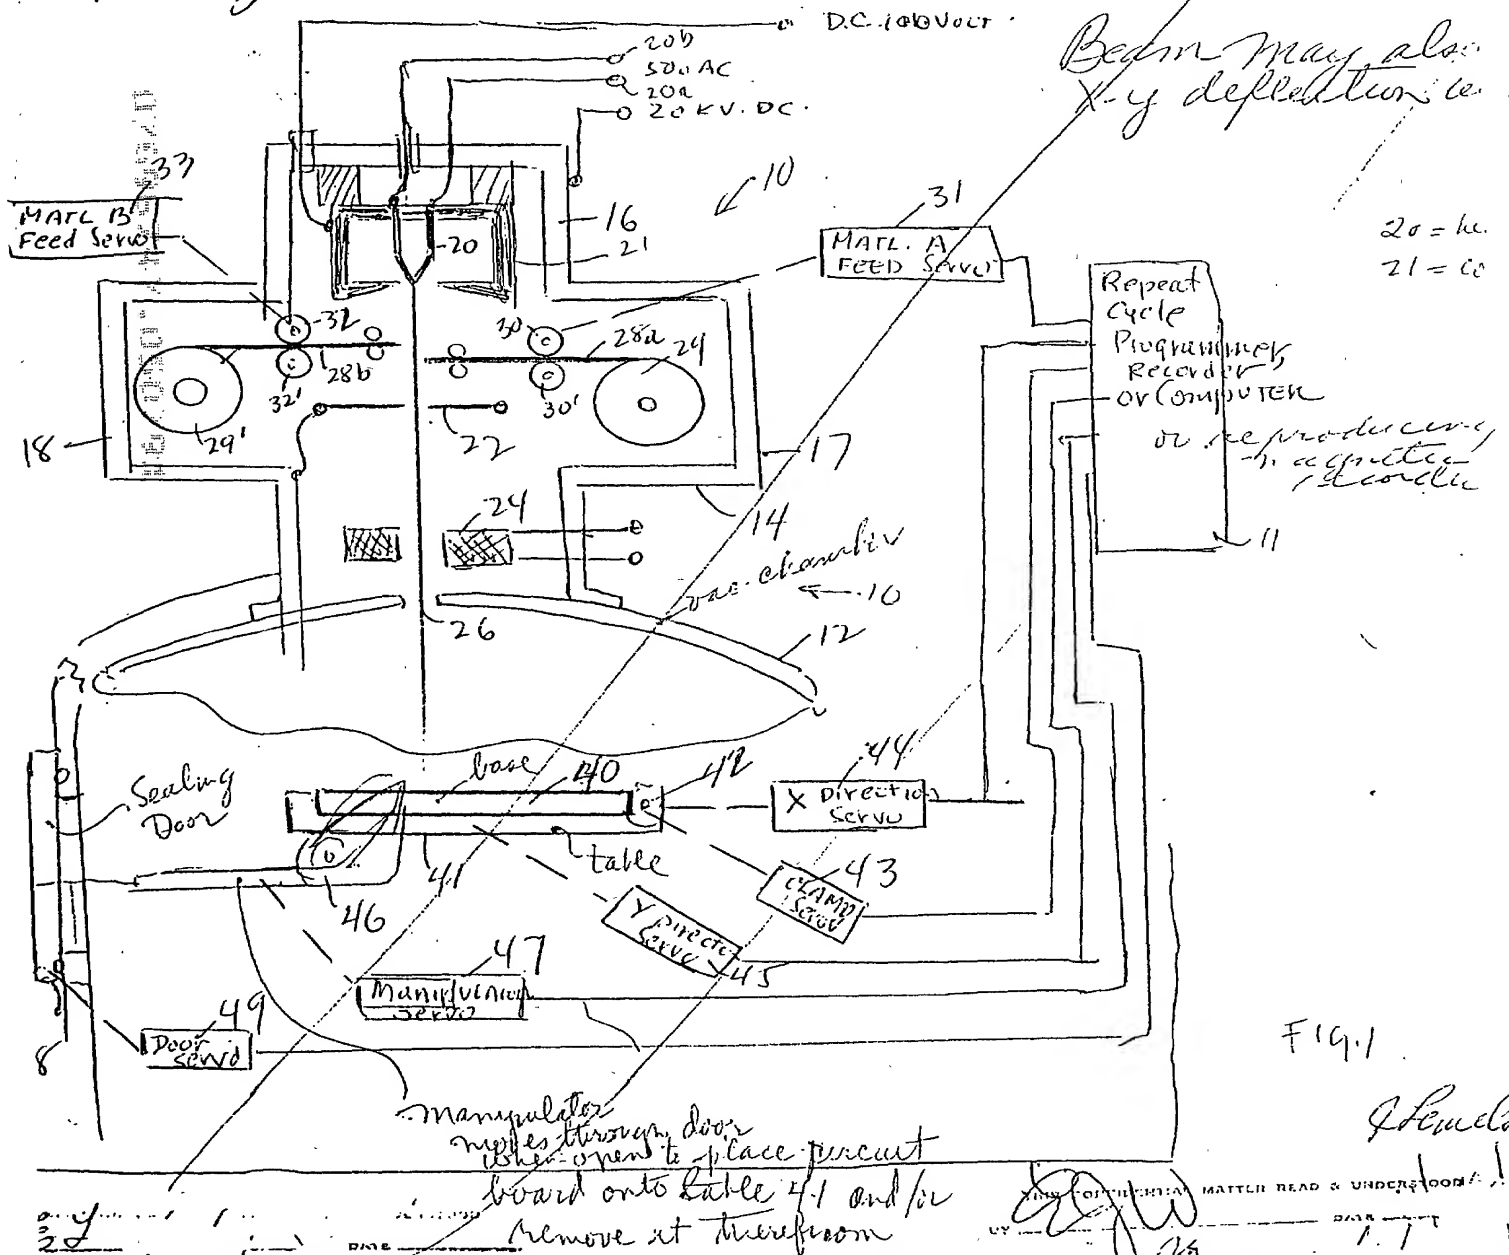 D.C. 100 VOLT
20b
50v AC
20a
20 KV. DC.
Beam may also
X-y deflection
10
33
MATL B
Feed Servo
16
21
20
31
MATL. A
FEED Servo
20 = he
21 = co
Repeat
Cycle
Programmer,
Recorder
or COMPUTER
or reproducing
magnetic
recorder
11
32
28b
32'
29'
30
28a
29
30'
22
18
17
14
24
vac. chamber
10
26
12
Sealing
Door
base
40
42
44
X Direction
Servo
table
41
46
43
CLAMP
Servo
Y Direction
Servo
45
47
Servo
49
Door
Servo
8
FIG.1
manipulator
moves through door
when open to place circuit
board onto table 41 and/or
remove it therefrom
MATTER READ & UNDERSTOOD
BY
DATE
DATE